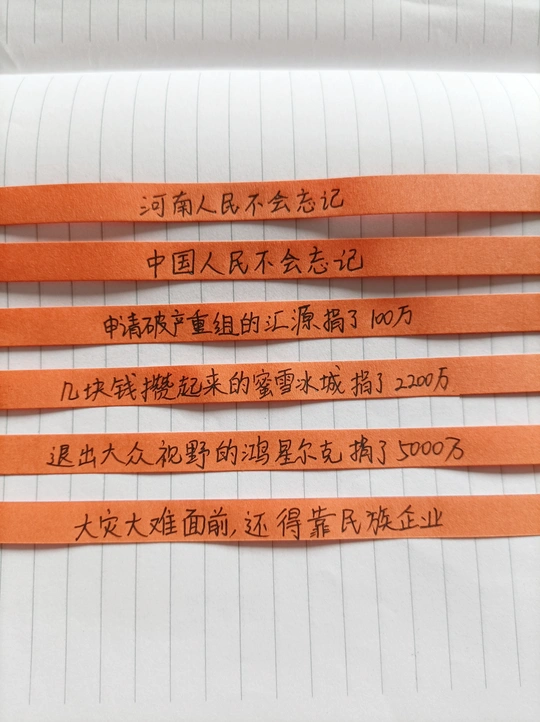 河南人民不会忘记
中国人民不会忘记
申请破产重组的汇源捐了100万
几块钱攒起来的蜜雪冰城捐了2200万
退出大众视野的鸿星尔克捐了5000万
大灾大难面前,还得靠民族企业